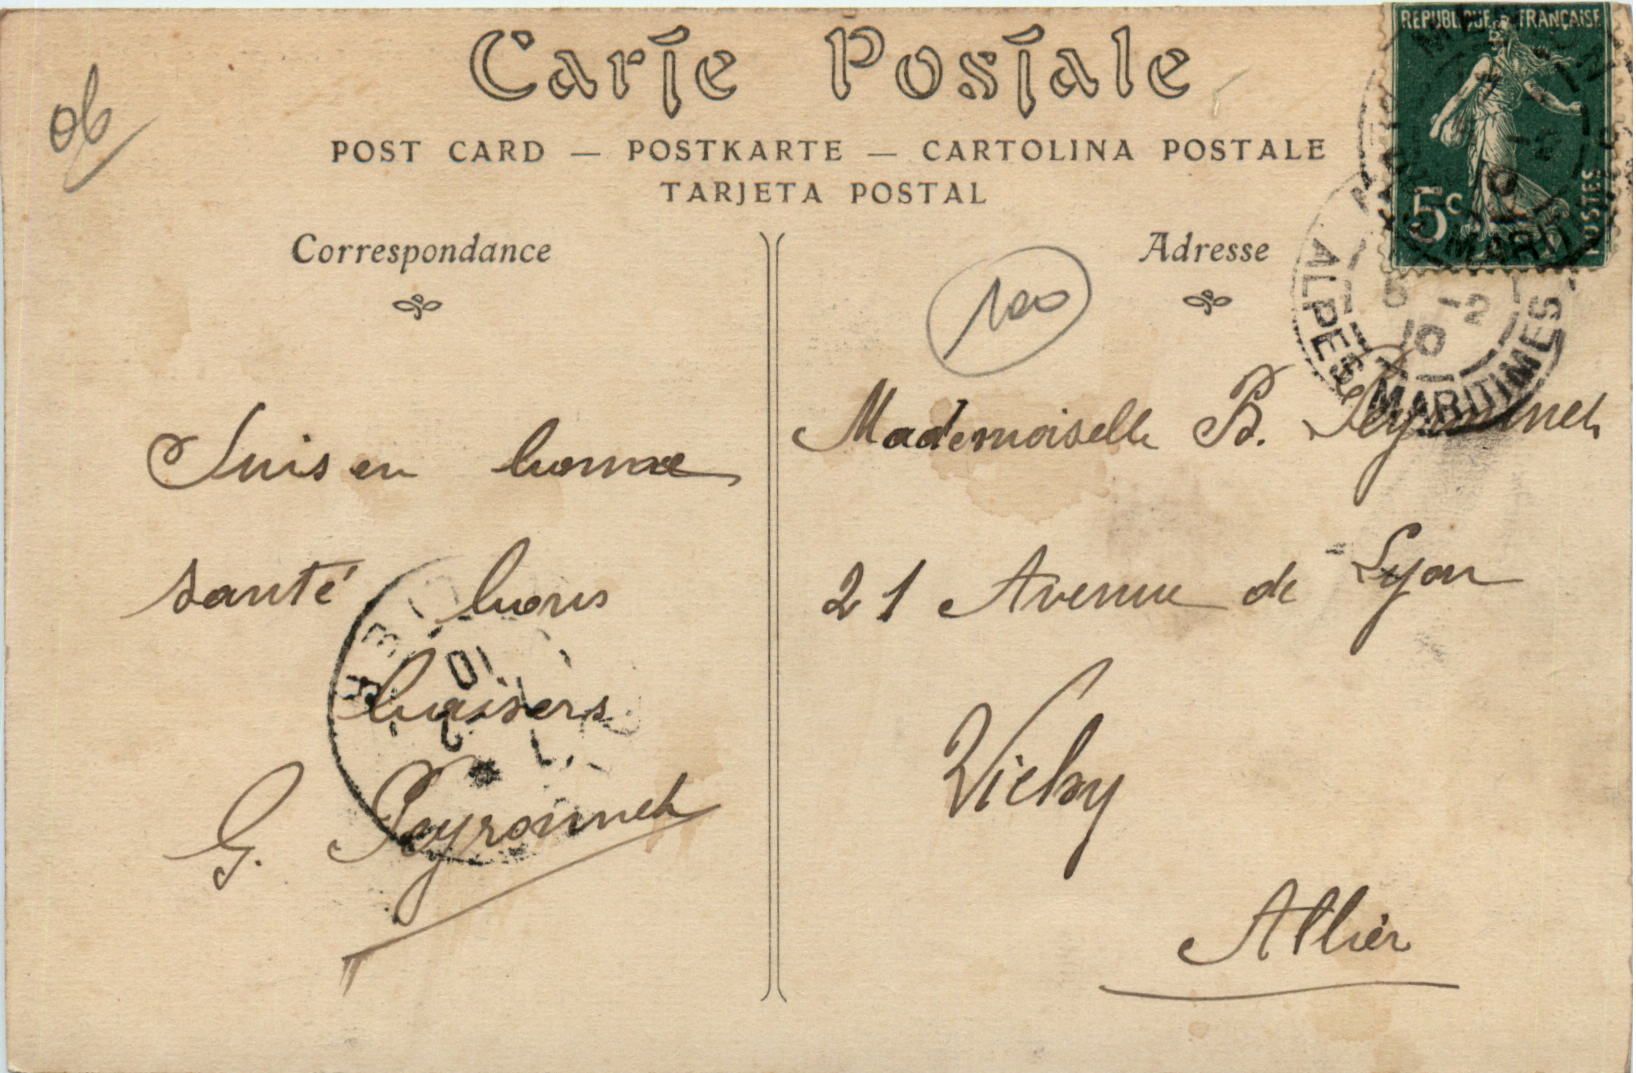 Carte Postale
POST CARD — POSTKARTE — CARTOLINA POSTALE
TARJETA POSTAL
Correspondance
Adresse
06
100
REPUBLIQUE FRANÇAISE
5c
POSTES
ALPES MARITIMES
5 -2
10
Suis en bonne
santé bons
baisers
G. Peyronnet
Mademoiselle B. Peyronnet
21 Avenue de Lyon
Vichy
Allier